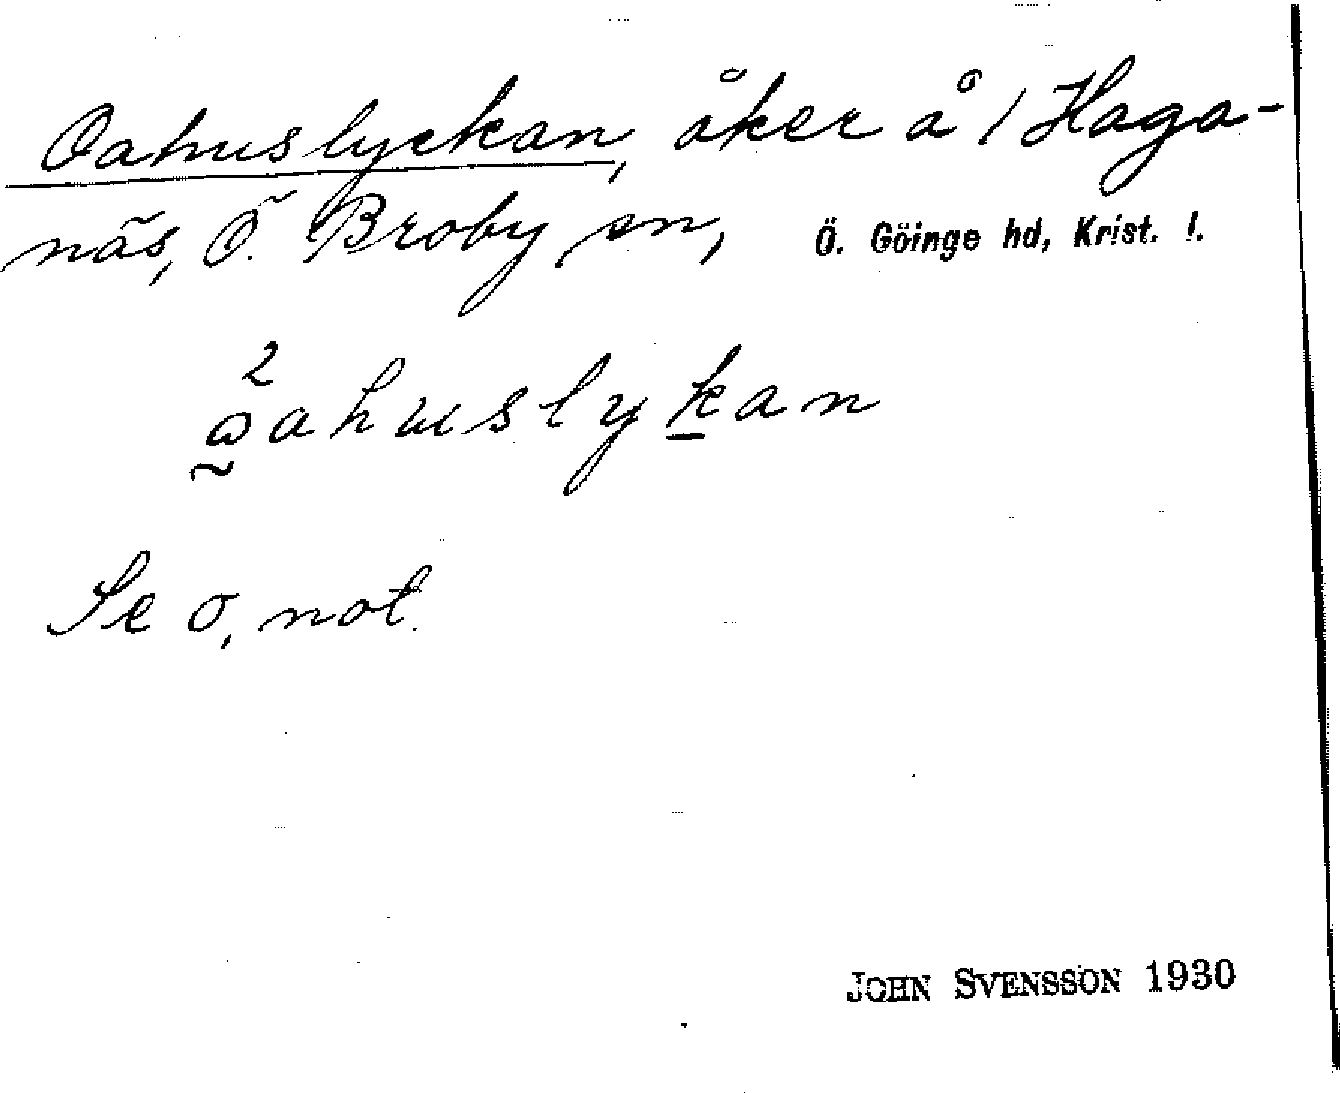 Oahuslyckan, åker å 1 Haga-
näs, Ö. Broby sn, Ö. Göinge hd, Krist. l.
2
ahuslykan
Se o, not.
JOHN SVENSSON 1930